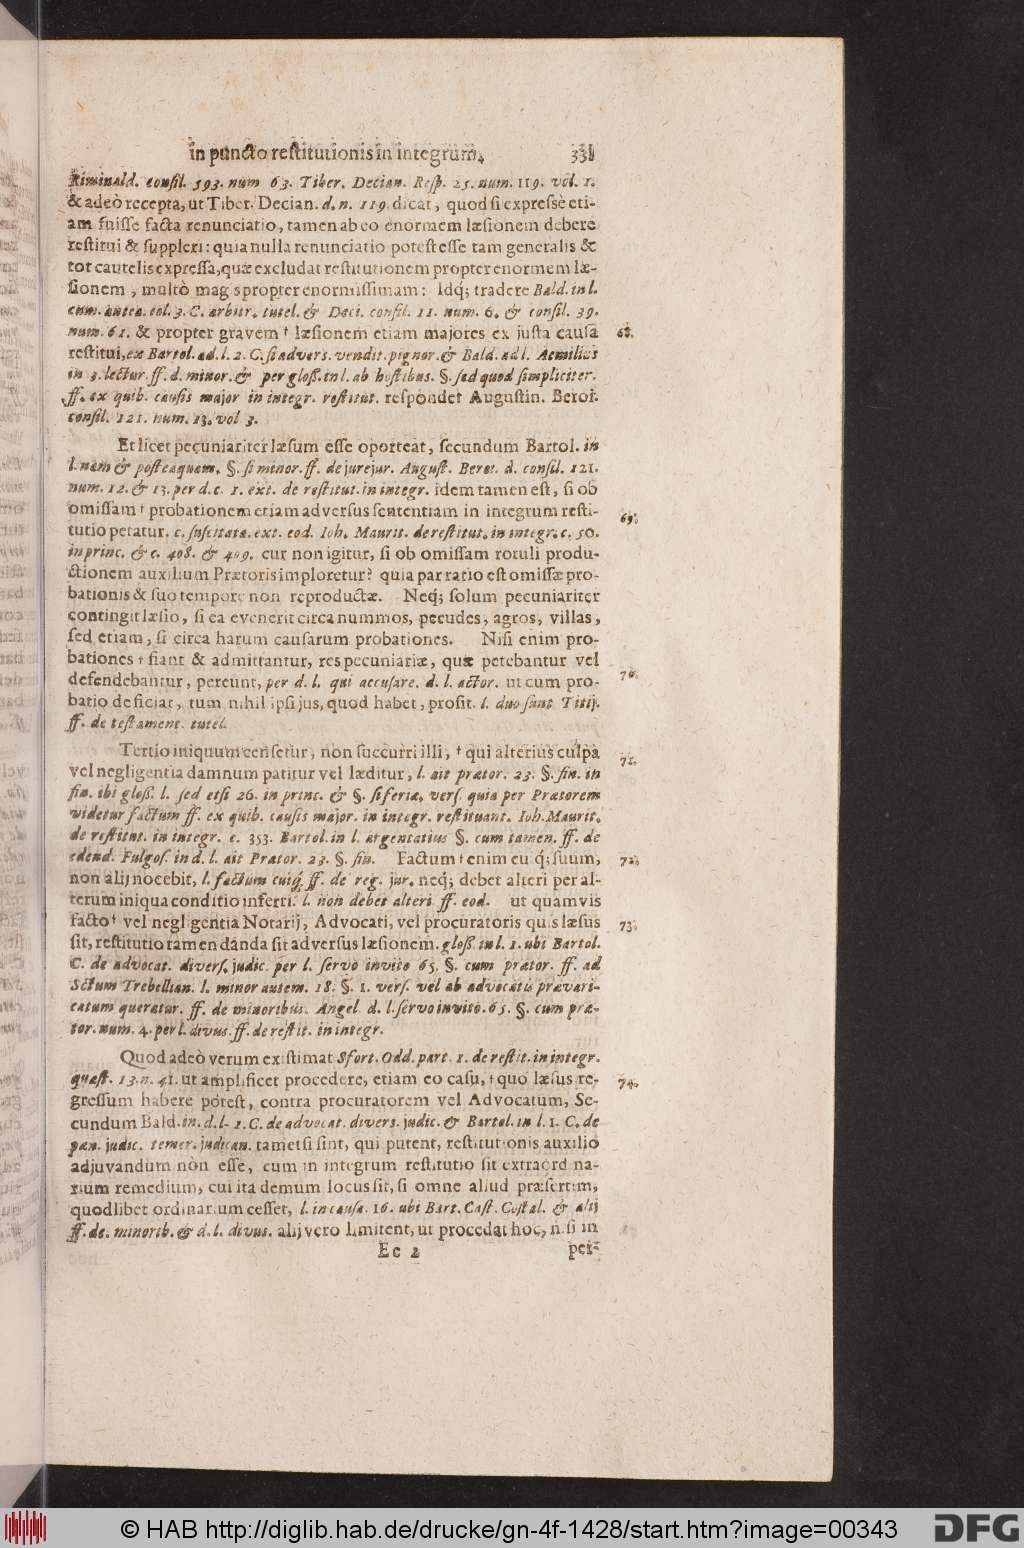 in puncto restitutionis in integrum. 331
Riminald. consil. 593. num 63. Tiber. Decian. Resp. 25. num. 119. vol. 1.
& adeò recepta, ut Tiber. Decian. d. n. 119. dicat, quod si expressè eti-
am fuisse facta renunciatio, tamen ab eo enormem læsionem debere
restitui & suppleri: quia nulla renunciatio potest esse tam generalis &
tot cautelis expressa, quæ excludat restitutionem propter enormem læ-
sionem, multò magis propter enormissimam: Idq; tradere Bald. in l.
cum antea. col. 3. C. arbitr. tutel. & Deci. consil. 11. num. 6. & consil. 39.
num. 61. & propter gravem † læsionem etiam majores ex justa causa 68.
restitui, ex Bartol. ad. l. 2. C. si advers. vendit. pignor. & Bald. ad l. Aemilius
in 3. lectur. ff. d. minor. & per gloss. in l. ab hostibus. §. sed quod simpliciter.
ff. ex quib. causis major in integr. restitut. respondet Augustin. Beroi.
consil. 121. num. 13. vol 3.
Et licet pecuniariter læsum esse oporteat, secundum Bartol. in
l. nam & posteaquam. §. si minor. ff. de jurejur. August. Beroi. d. consil. 121.
num. 12. & 13. per d. c. 1. ext. de restitut. in integr. idem tamen est, si ob
omissam † probationem etiam adversus sententiam in integrum resti- 69.
tutio petatur. c. suscitata. ext. eod. Ioh. Maurit. de restitut. in integr. c. 50.
in princ. & c. 408. & 409. cur non igitur, si ob omissam rotuli produ-
ctionem auxilium Prætoris imploretur? quia par ratio est omissæ pro-
bationis & suo tempore non reproductæ. Neq; solum pecuniariter
contingit læsio, si ea evenerit circa nummos, pecudes, agros, villas,
sed etiam, si circa harum causarum probationes. Nisi enim pro-
bationes † fiant & admittantur, res pecuniariæ, quæ petebantur vel 70.
defendebantur, pereunt, per d. l. qui accusare. d. l. actor. ut cum pro-
batio deficiat, tum nihil ipsi jus, quod habet, prosit. l. duo sunt Titij.
ff. de testament. tutel.
Tertio iniquum censetur, non succurri illi, † qui alterius culpa 71.
vel negligentia damnum patitur vel læditur, l. ait prætor. 23. §. fin. in
fin. ibi gloss. l. sed etsi 26. in princ. & §. si feriæ. vers. quia per Prætorem
videtur factum ff. ex quib. causis major. in integr. restituant. Ioh. Maurit.
de restitut. in integr. c. 353. Bartol. in l. argentarius §. cum tamen. ff. de
edend. Fulgos. in d. l. ait Prætor. 23. §. fin. Factum † enim cuiq; suum, 72.
non alij nocebit, l. factum cuiq. ff. de reg. jur. neq; debet alteri per al-
terum iniqua conditio inferri. l. non debet alteri ff. eod. ut quamvis
facto † vel negligentia Notarij, Advocati, vel procuratoris quis læsus 73.
sit, restitutio tamen danda sit adversus læsionem. gloss. in l. 1. ubi Bartol.
C. de advocat. divers. judic. per l. servo invito 65. §. cum prætor. ff. ad
Sctum Trebellian. l. minor autem. 18. §. 1. vers. vel ab advocatis prævari-
catum queratur. ff. de minoribus. Angel. d. l. servo invito. 65. §. cum præ-
tor. num. 4. per l. divus. ff. de restit. in integr.
Quod adeò verum existimat Sfort. Odd. part. 1. de restit. in integr.
quæst. 13. n. 41. ut amplificet procedere, etiam eo casu, † quo læsus re- 74.
gressum habere potest, contra procuratorem vel Advocatum, Se-
cundum Bald. in. d. l. 1. C. de advocat. divers. judic. & Bartol. in l. 1. C. de
pœn. judic. temer. judican. tametsi sint, qui putent, restitutionis auxilio
adjuvandum non esse, cum in integrum restitutio sit extraordina-
rium remedium, cui ita demum locus sit, si omne aliud præsertim,
quodlibet ordinarium cesset, l. in causa. 16. ubi Bart. Cast. Costal. & alij
ff. de. minorib. & d. l. divus. alij vero limitent, ut procedat hoc, nisi in
Ee 2 per-
© HAB http://diglib.hab.de/drucke/gn-4f-1428/start.htm?image=00343
DFG